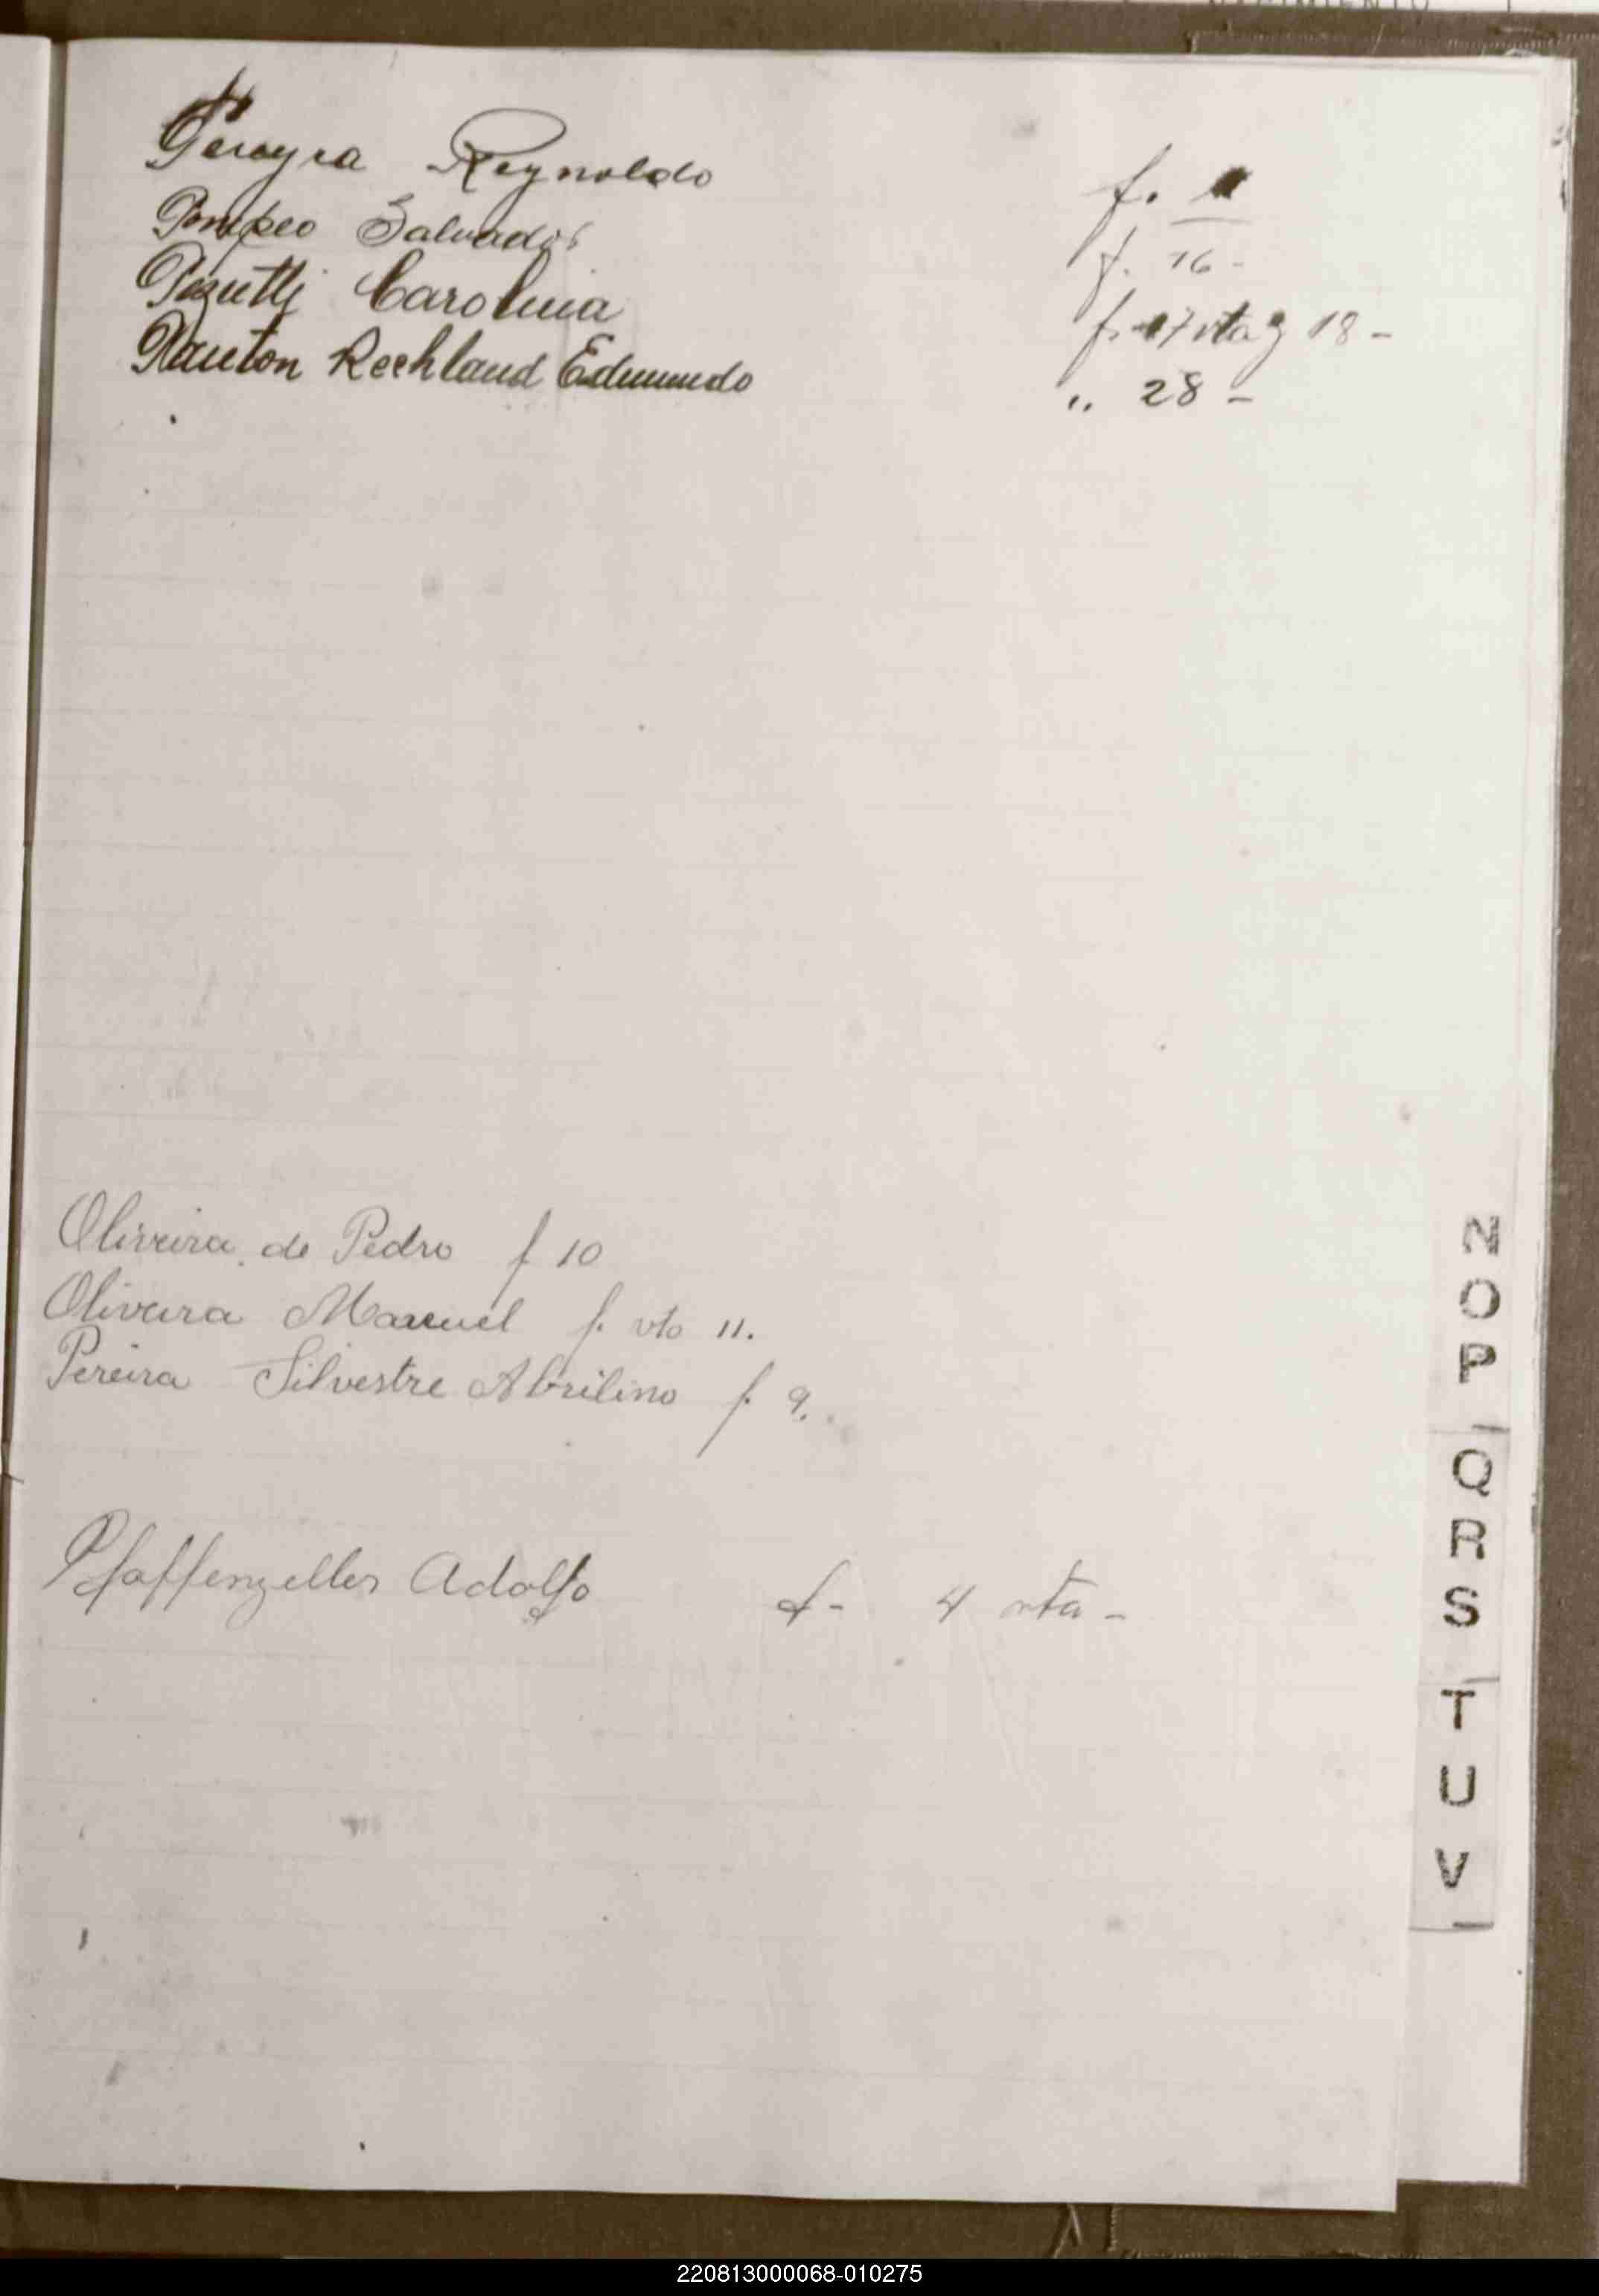 Pereyra Reynoldo f.
Pompeo Salvador f. 16-
Pezutti Carolina f. 17 vta y 18 -
Planton Rechland Edmundo " 28 -
Oliveira de Pedro f 10
Oliveira Manuel f. vto 11.
Pereira Silvestre Abrilino f. 9.
Pfaffenzeller Adolfo f- 4 vta -
N
O
P
Q
R
S
T
U
V
220813000068-010275